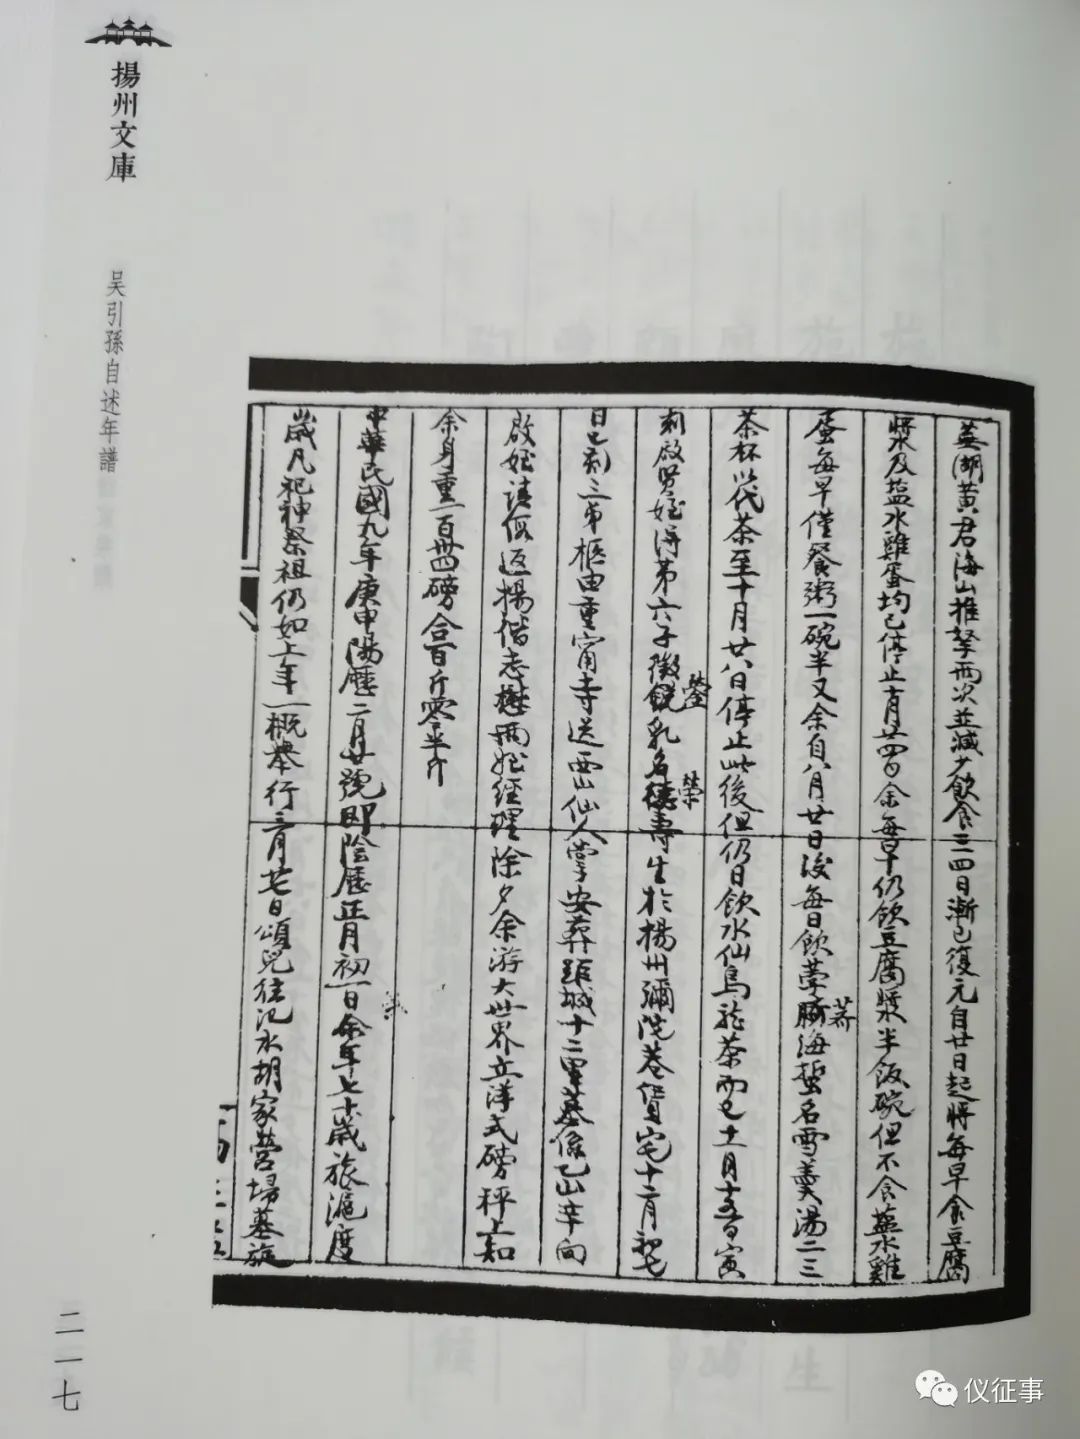 揚州文庫
吴引孫自述年譜
蕪湖黄君海山推拏兩次並減少飲食三四日漸已復元自廿日起將每早食豆腐
漿及盐水雞蛋均已停止十月廿四日余每早仍飲豆腐漿半飯碗但不食鹽水雞
蛋每早僅餐粥一碗半又余自八月廿日後每日飲荸薺海蜇名雪羹湯二三
茶杯以代茶至十月廿八日停止此後但仍日飲水仙烏龍茶而已十一月十五日寅
刻啟賢姪得第六子徵鎣乳名榮壽生於揚州彌陀巷賃宅十二月初七
日巳刻三弟柩由重甯寺送西山仙人掌安葬距城十二里墓係乙山辛向
啟姪讓侄返揚偕志 兩姪經理除夕余游大世界立洋式磅秤上知
余身重一百卅四磅合百斤零半斤
中華民國九年庚申陽歷二月廿號即陰歷正月初一日余年七十歲旅滬度
歲凡祀神祭祖仍如上年一概舉行二月廿七日頌兒往氾水胡家營場墓旋
二一一七
仪征事